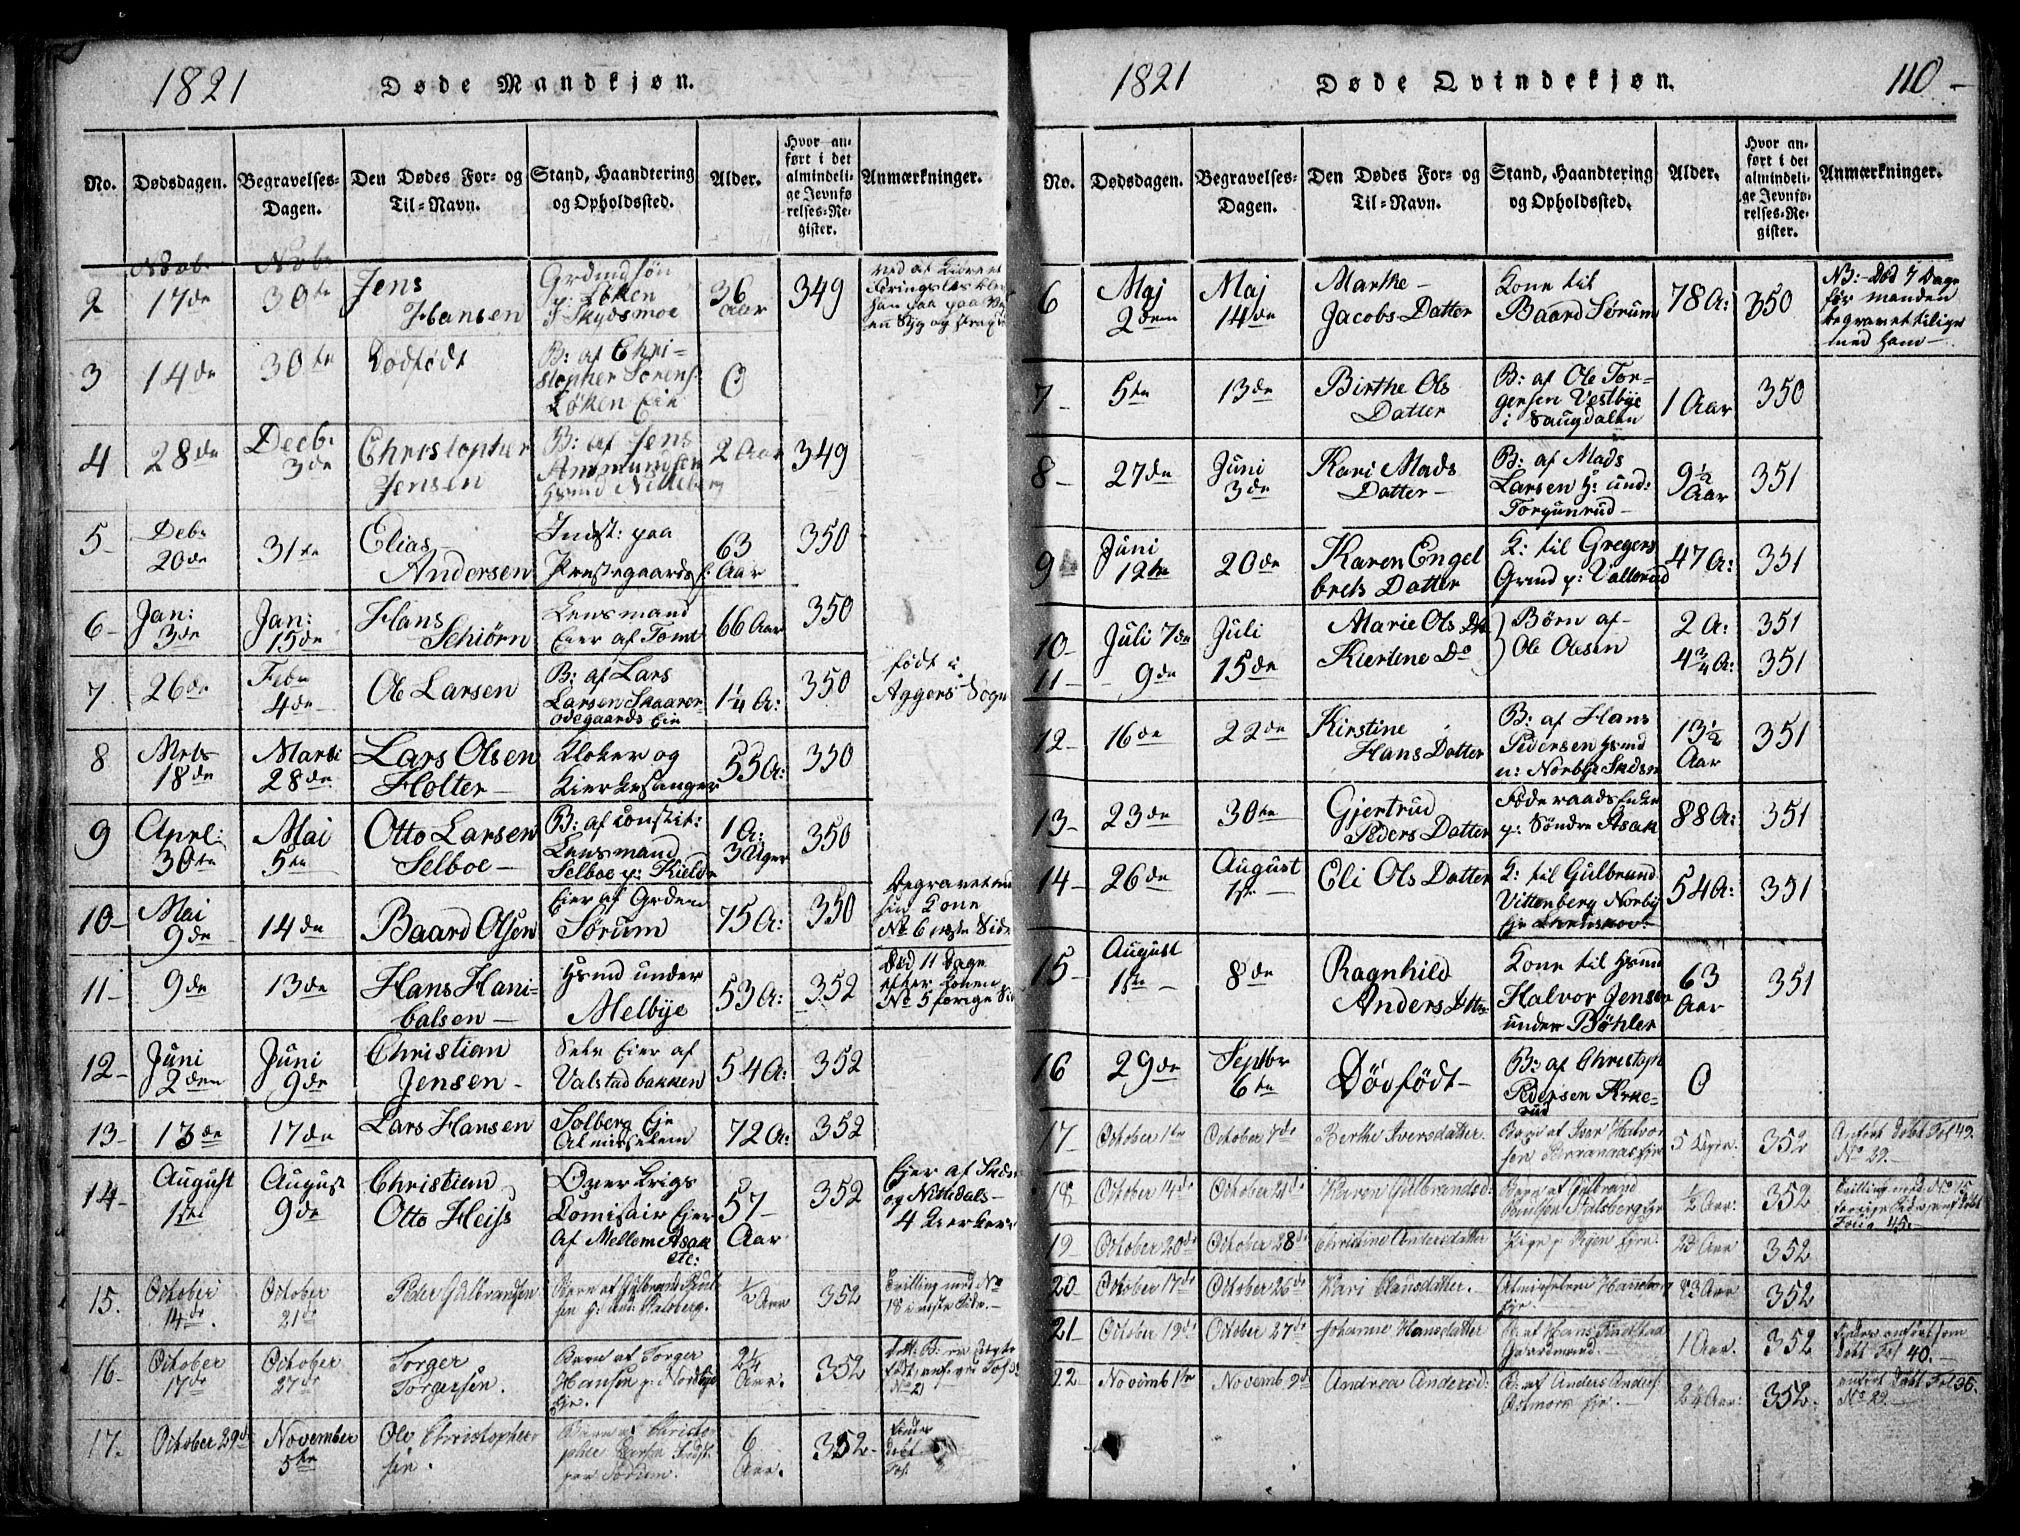 1821
Døde Mandkjøn.
No.
Dødsdagen.
Begravelses-
Dagen.
Den Dødes For- og
Til-Navn.
Stand, Haandtering
og Opholdssted.
Alder.
Hvor an-
ført i det
almindeli-
ge Jevnfø-
relses-Re-
gister.
Anmærkninger.
2
Novb:
17de
Novb:
30te
Jens
Hansen
p: Løken
36
Aar
349
3
14de
30te
Dødfødt
B: af Chri-
stopher Sørens:
Løken Eie
0
4
28de
Decb:
3de
Christopher
Jensen
B: af Jens
Ammundsen
Hsmd Nitteberg
2 Aar
349
5-
Deb:
20de
31te
Elias
Andersen
Indst: paa
Prestegaards
63
Aar
350
6-
Jan:
3de
Jan:
15de
Hans
Schiørn
Lensmand
Eier af Tomt
66 Aar
350
7
26de
Febr
4de
Ole Larsen
B: af Lars
Larsen Skaarer-
ødegaards Eie
1¼ A:
350
født i
Aggers Sogn
8
Mrts
18de
Marti
28de
Lars Olsen
Holter-
Kloker og
Kierkesanger
55 A:
350
9
Aprl:
30te
Mai
5te
Otto Larsen
Selboe-
B: af constit:
Lensmand
Selboe p:
1 A:
3 Uger
350
10-
Mai
9de
14de
Baard Olsen
Eier af Grden
Sørum
75 A:
350
Begravet med
sin Kone
No 6 næste Side
11-
9de
13de
Hans Hani-
balsen-
Hsmd under
Melbye
53 A:
352
Død 11 Dage
efter Konen
No 5 forige Sid
12-
Juni
2den
Juni
9de
Christian
Jensen-
Selv Eier af
Valstadbakken
54 A:
352
13-
13de
17de
Lars Hansen
Solberg Eje
Almisselem
72 A:
352
14-
August
1ste
August
9de
Christian
Otto Heiss
Over Krigs
Comisair Eier
af Mellem Asak
etc:
57-
Aar
352
Eier af
og Nittedals-
4 Kierker
15.
October
14de.
October
21de
Peder Gulbrandsen
Barn af Gulbrand
½ Aar
352
Tvilling med No
18 næste Side.
16.
October
17de
October
27de
Torger
Torgersen.
Barn af Torger
Hansen p: Nordbye
Eje.
2¼
Aar.
352
17.
October 29de
November
5te
Ole Christophers
sen.
Barn af Christo
pher
Sørum.
6
Aar.
352.
1821
Døde Qvindekjøn.
110-
No.
Dødsdagen.
Begravelses-
Dagen.
Den Dødes For- og
Til-Navn.
Stand, Haandtering
og Opholdssted.
Alder.
Hvor an-
ført i det
almindeli-
ge Jevnfø-
relses-Re-
gister.
Anmærkninger.
6
Maj
2den
Maj
14de
Marthe-
Jacobs Datter
Kone til
Baard Sørum
78 A:
350
NB:- Død 7 Dage
før manden
begravet tilige
med ham-
7-
5te
13de
Birthe Ols
Datter
B: af Ole Tor-
gersen Vestbye
i Saugdalen
1 Aar
350
8-
27de
Juni
3de
Kari Mads
Datter-
B: af Mads
Larsen H: und:
Torgunrud-
9½
Aar
351
9
Juni
12te
20de
Karen Engel
brets Datter
K: til Gregers
Grmd p: Vallerud
47 A:
351
10-
Juli 7de
Juli
15de
Marie Ols Dtr
Børn af
Ole Olesen
2 A:
351
11-
9de
Kiertine Do
4¾ A:
351
12-
16de
22de
Kirstine
Hans Datter
B: af Hans
Pedersen Hsmd
u: Norbye
13½
Aar
351
13-
23de
30te
Gjertrud
Peders Datter
Føderaads Enke
p: Søndre Asak
88 A:
351
14-
26de
August
1ste
Eli Ols Datter
K: til Gulbrand
Vittenberg Norby
54 A:
351
15-
August
1ste-
8de
Ragnhild
Anders Dtter
Kone til Hsmd
Halvor Jensen
under Böhler
63
Aar
351
16
29de
Septbr
6te
Dødfødt-
B: af Christoph
Pedersen Arne-
rud
0
17-
October 1ste
October 7de
Berthe Iversdatter.
Barn af Iver Halvor
sen
5 Uger.
352
Anført Døbt Fol 49.
No 29.
18
October 14de
October 21de
Karen Gulbrandsd:
Barn af Gulbrand
Poulsen Stalsberg Eje
½ Aar:
352
Tvilling med No 15
Folio 45.
19-
October 20de
October 28de
Christine Andersdatter
Pige p:
352
20-
October 17de
October 26de
Kari Clausdatter.
Almisselem
83 Aar
352
21-
October 19de
October 27de
Johanne Hansdatter
B: af Hans
Gaardmand.
1 Aar.
352
Døbt Fol 40.-
22-
Novemb 1ste
Novemb 9de
Andrea Andersd:
B: af Anders
2¼ Aar:
352.
anført Døbt Fol 35.
No 22.-